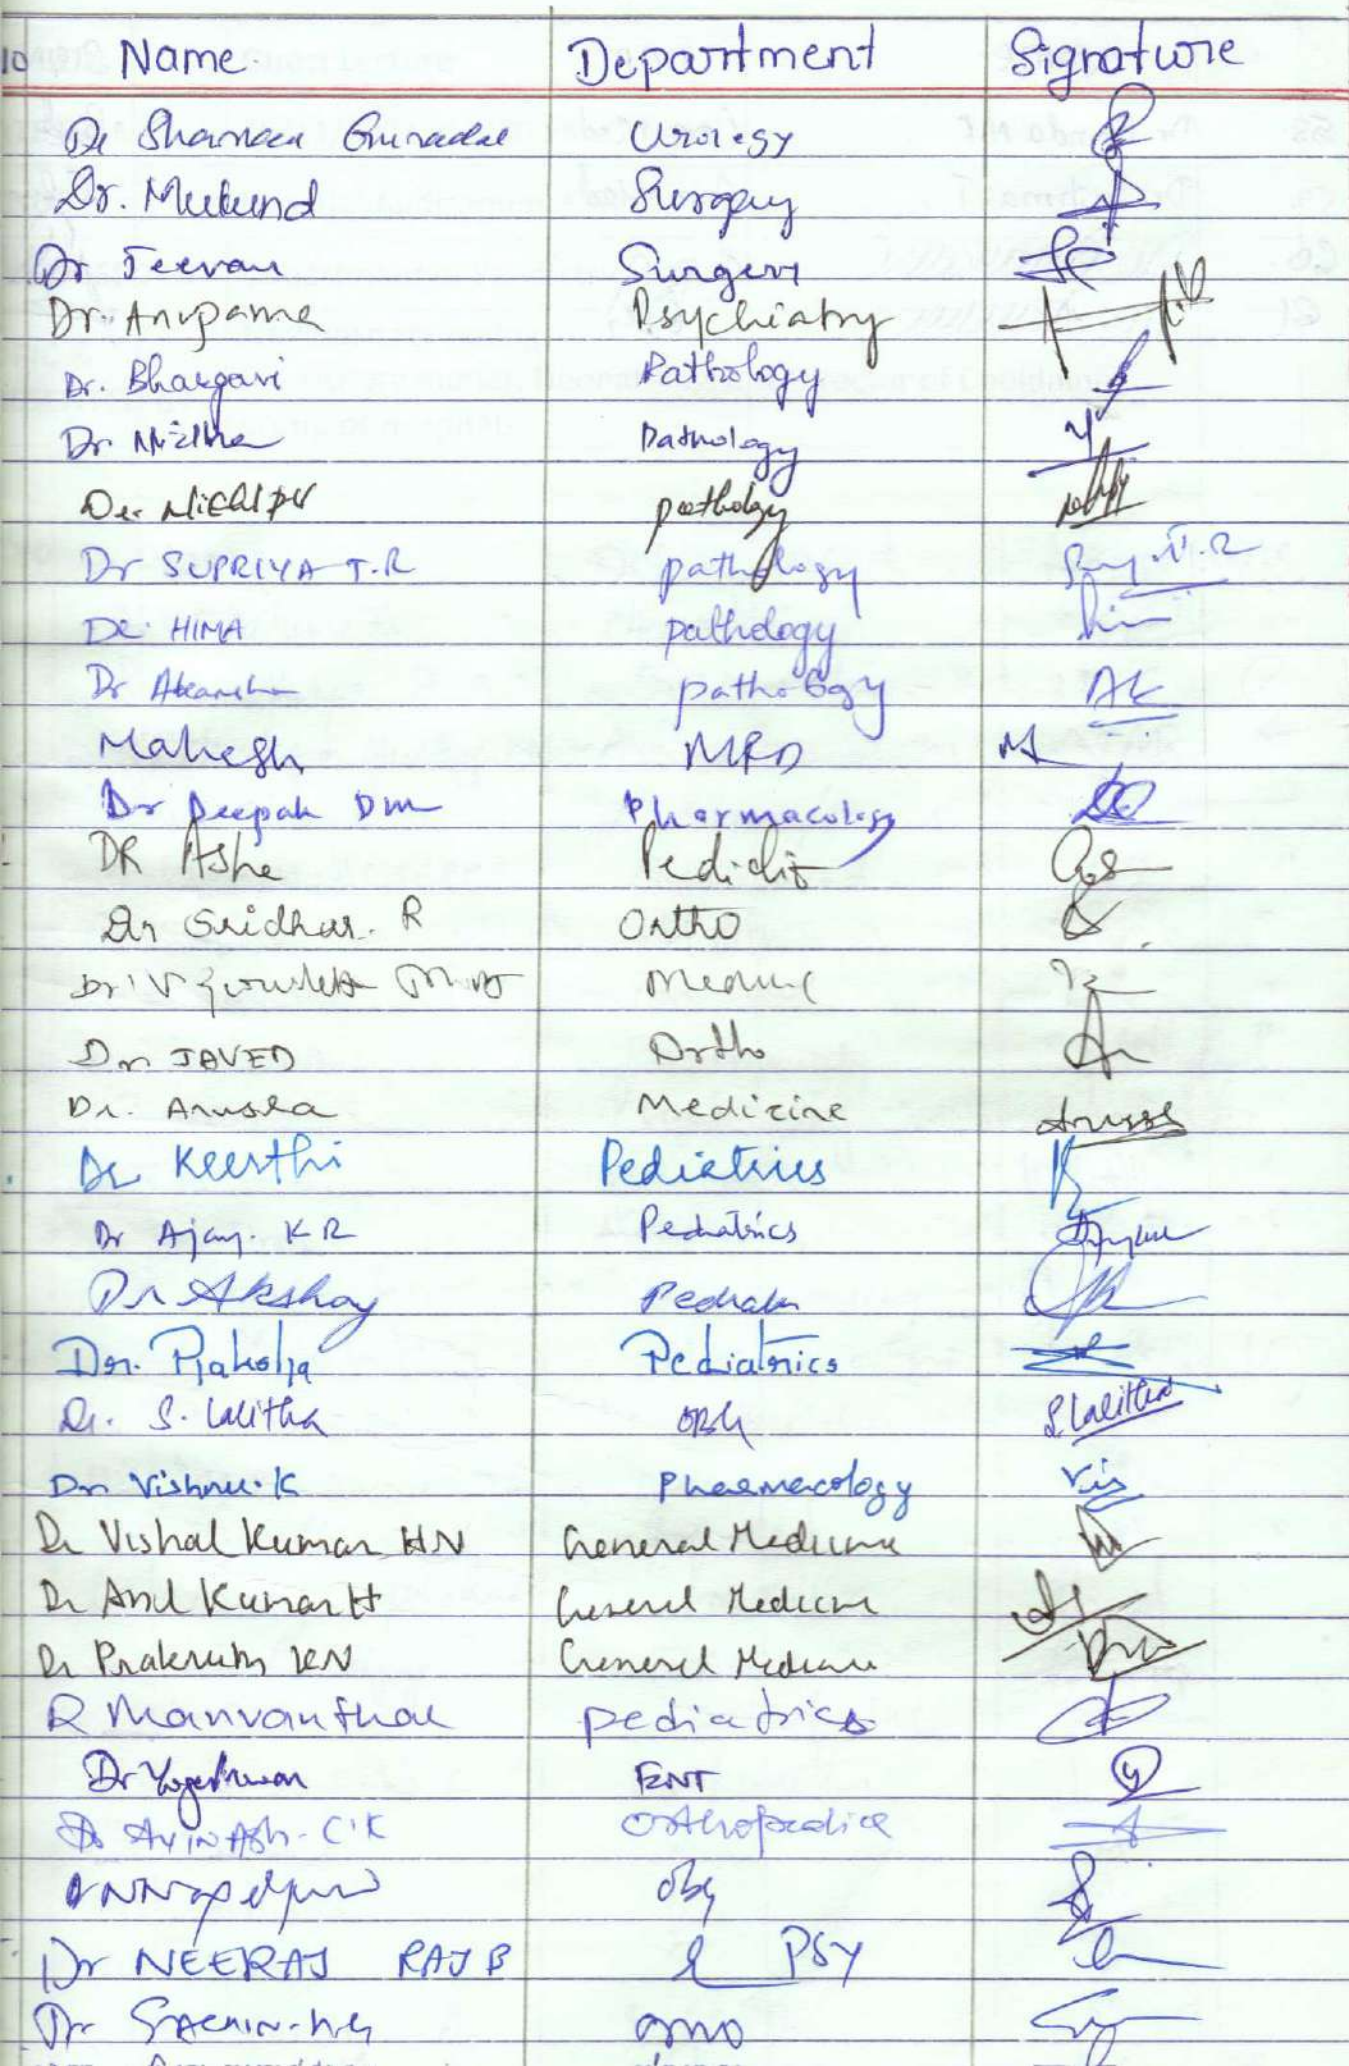 Name Department Signature
Dr Urology
Dr. Mukund Surgery
Dr Jeevan Surgery
Dr. Anupama Psychiatry
Dr. Bhargavi Pathology
Dr. Pathology
Dr. pathology
Dr SUPRIYA T.R pathology
Dr. HIMA pathology
Dr Akansha pathology AK
Mahesh MRD M
Dr Deepak DM Pharmacology
DR Asha
Dr Sridhar. R Ortho
Dr. V
Dr. JAVED Ortho
Dr. Anusha Medicine
Dr Keerthi Pediatrics
Dr Ajay. K R Pediatrics
Dr Akshay
Dr. Raksha Pediatrics
Dr. S. Lalitha OBG S. Lalitha
Dr Vishnu. K Pharmacology Vis
Dr Vishal Kumar HN General Medicine
Dr Anil Kumar H General Medicine
Dr Prakruth KN General Medicine
R Manvanthar pediatrics
Dr Yogeshwar ENT
Dr AVINASH. C.K Orthopedics
obg
Dr NEERAJ RAJ B PSY
Dr SACHIN